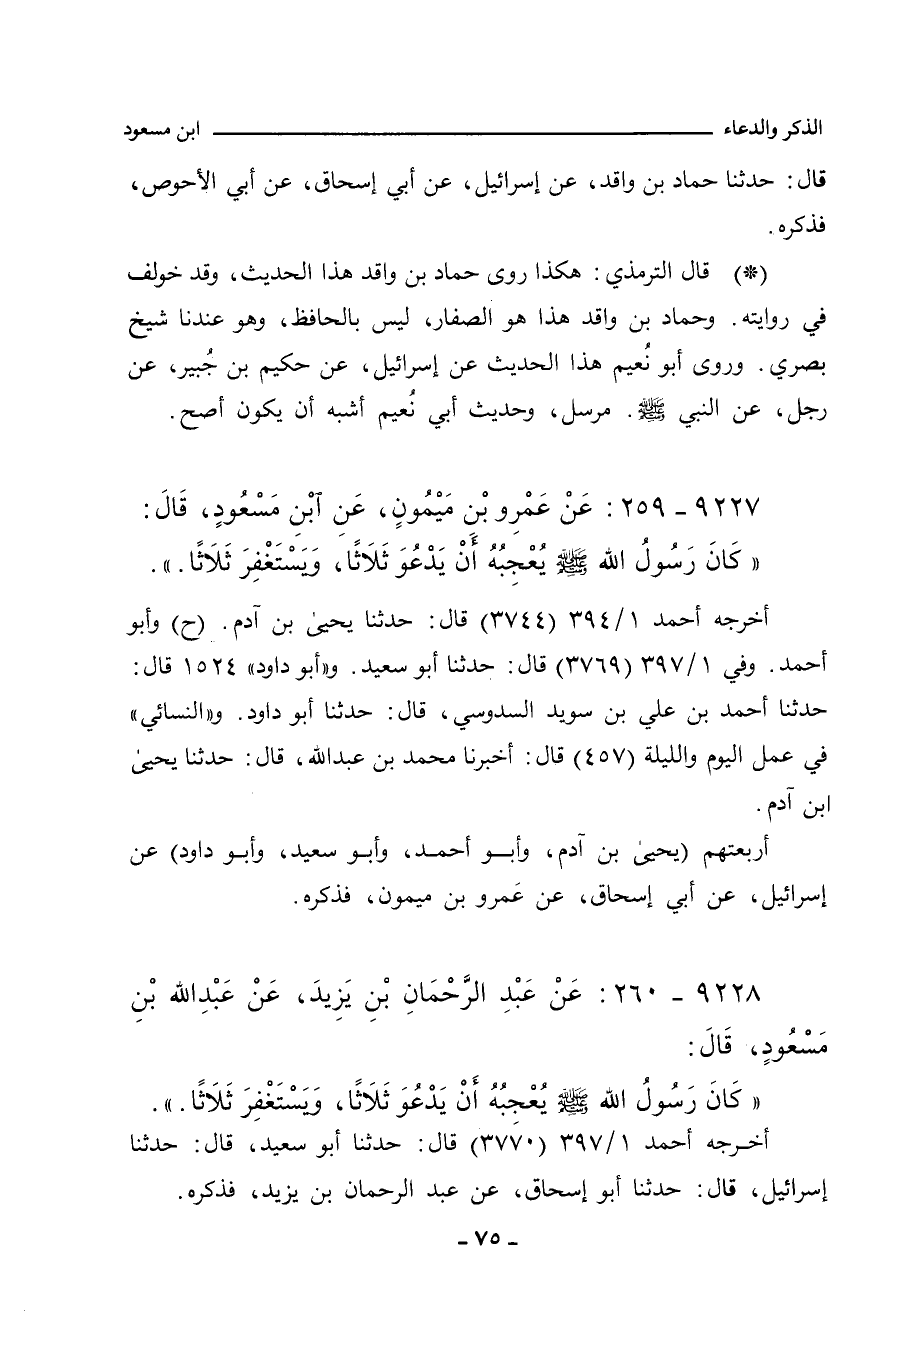 الذكر والدعاء ـــــــــــــــــــــ ابن مسعود
قال: حدثنا حماد بن واقد، عن إسرائيل، عن أبي إسحاق، عن أبي الأحوص،
فذكره.
(*) قال الترمذي: هكذا روى حماد بن واقد هذا الحديث، وقد خولف
في روايته. وحماد بن واقد هذا هو الصفار، ليس بالحافظ، وهو عندنا شيخ
بصري. وروى أبو نُعيم هذا الحديث عن إسرائيل، عن حكيم بن جُبير، عن
رجل، عن النبي ﷺ. مرسل، وحديث أبي نُعيم أشبه أن يكون أصح.
٩٢٢٧ ـ ٢٥٩: عَنْ عَمْرِو بْنِ مَيْمُونٍ، عَنِ ٱبْنِ مَسْعُودٍ، قَالَ:
« كَانَ رَسُولُ الله ﷺ يُعْجِبُهُ أَنْ يَدْعُوَ ثَلَاثًا، وَيَسْتَغْفِرَ ثَلَاثًا. ».
أخرجه أحمد ٣٩٤/١ (٣٧٤٤) قال: حدثنا يحيىٰ بن آدم. (ح) وأبو
أحمد. وفي ٣٩٧/١ (٣٧٦٩) قال: حدثنا أبو سعيد. و«أبو داود» ١٥٢٤ قال:
حدثنا أحمد بن علي بن سويد السدوسي، قال: حدثنا أبو داود. و«النسائي»
في عمل اليوم والليلة (٤٥٧) قال: أخبرنا محمد بن عبدالله، قال: حدثنا يحيىٰ
ابن آدم.
أربعتهم (يحيىٰ بن آدم، وأبو أحمد، وأبو سعيد، وأبو داود) عن
إسرائيل، عن أبي إسحاق، عن عَمرو بن ميمون، فذكره.
٩٢٢٨ ـ ٢٦٠: عَنْ عَبْدِ الرَّحْمَانِ بْنِ يَزِيدَ، عَنْ عَبْدِالله بْنِ
مَسْعُودٍ، قَالَ:
« كَانَ رَسُولُ الله ﷺ يُعْجِبُهُ أَنْ يَدْعُوَ ثَلَاثًا، وَيَسْتَغْفِرَ ثَلَاثًا. ».
أخرجه أحمد ٣٩٧/١ (٣٧٧٠) قال: حدثنا أبو سعيد، قال: حدثنا
إسرائيل، قال: حدثنا أبو إسحاق، عن عبد الرحمان بن يزيد، فذكره.
ـ ٧٥ ـ